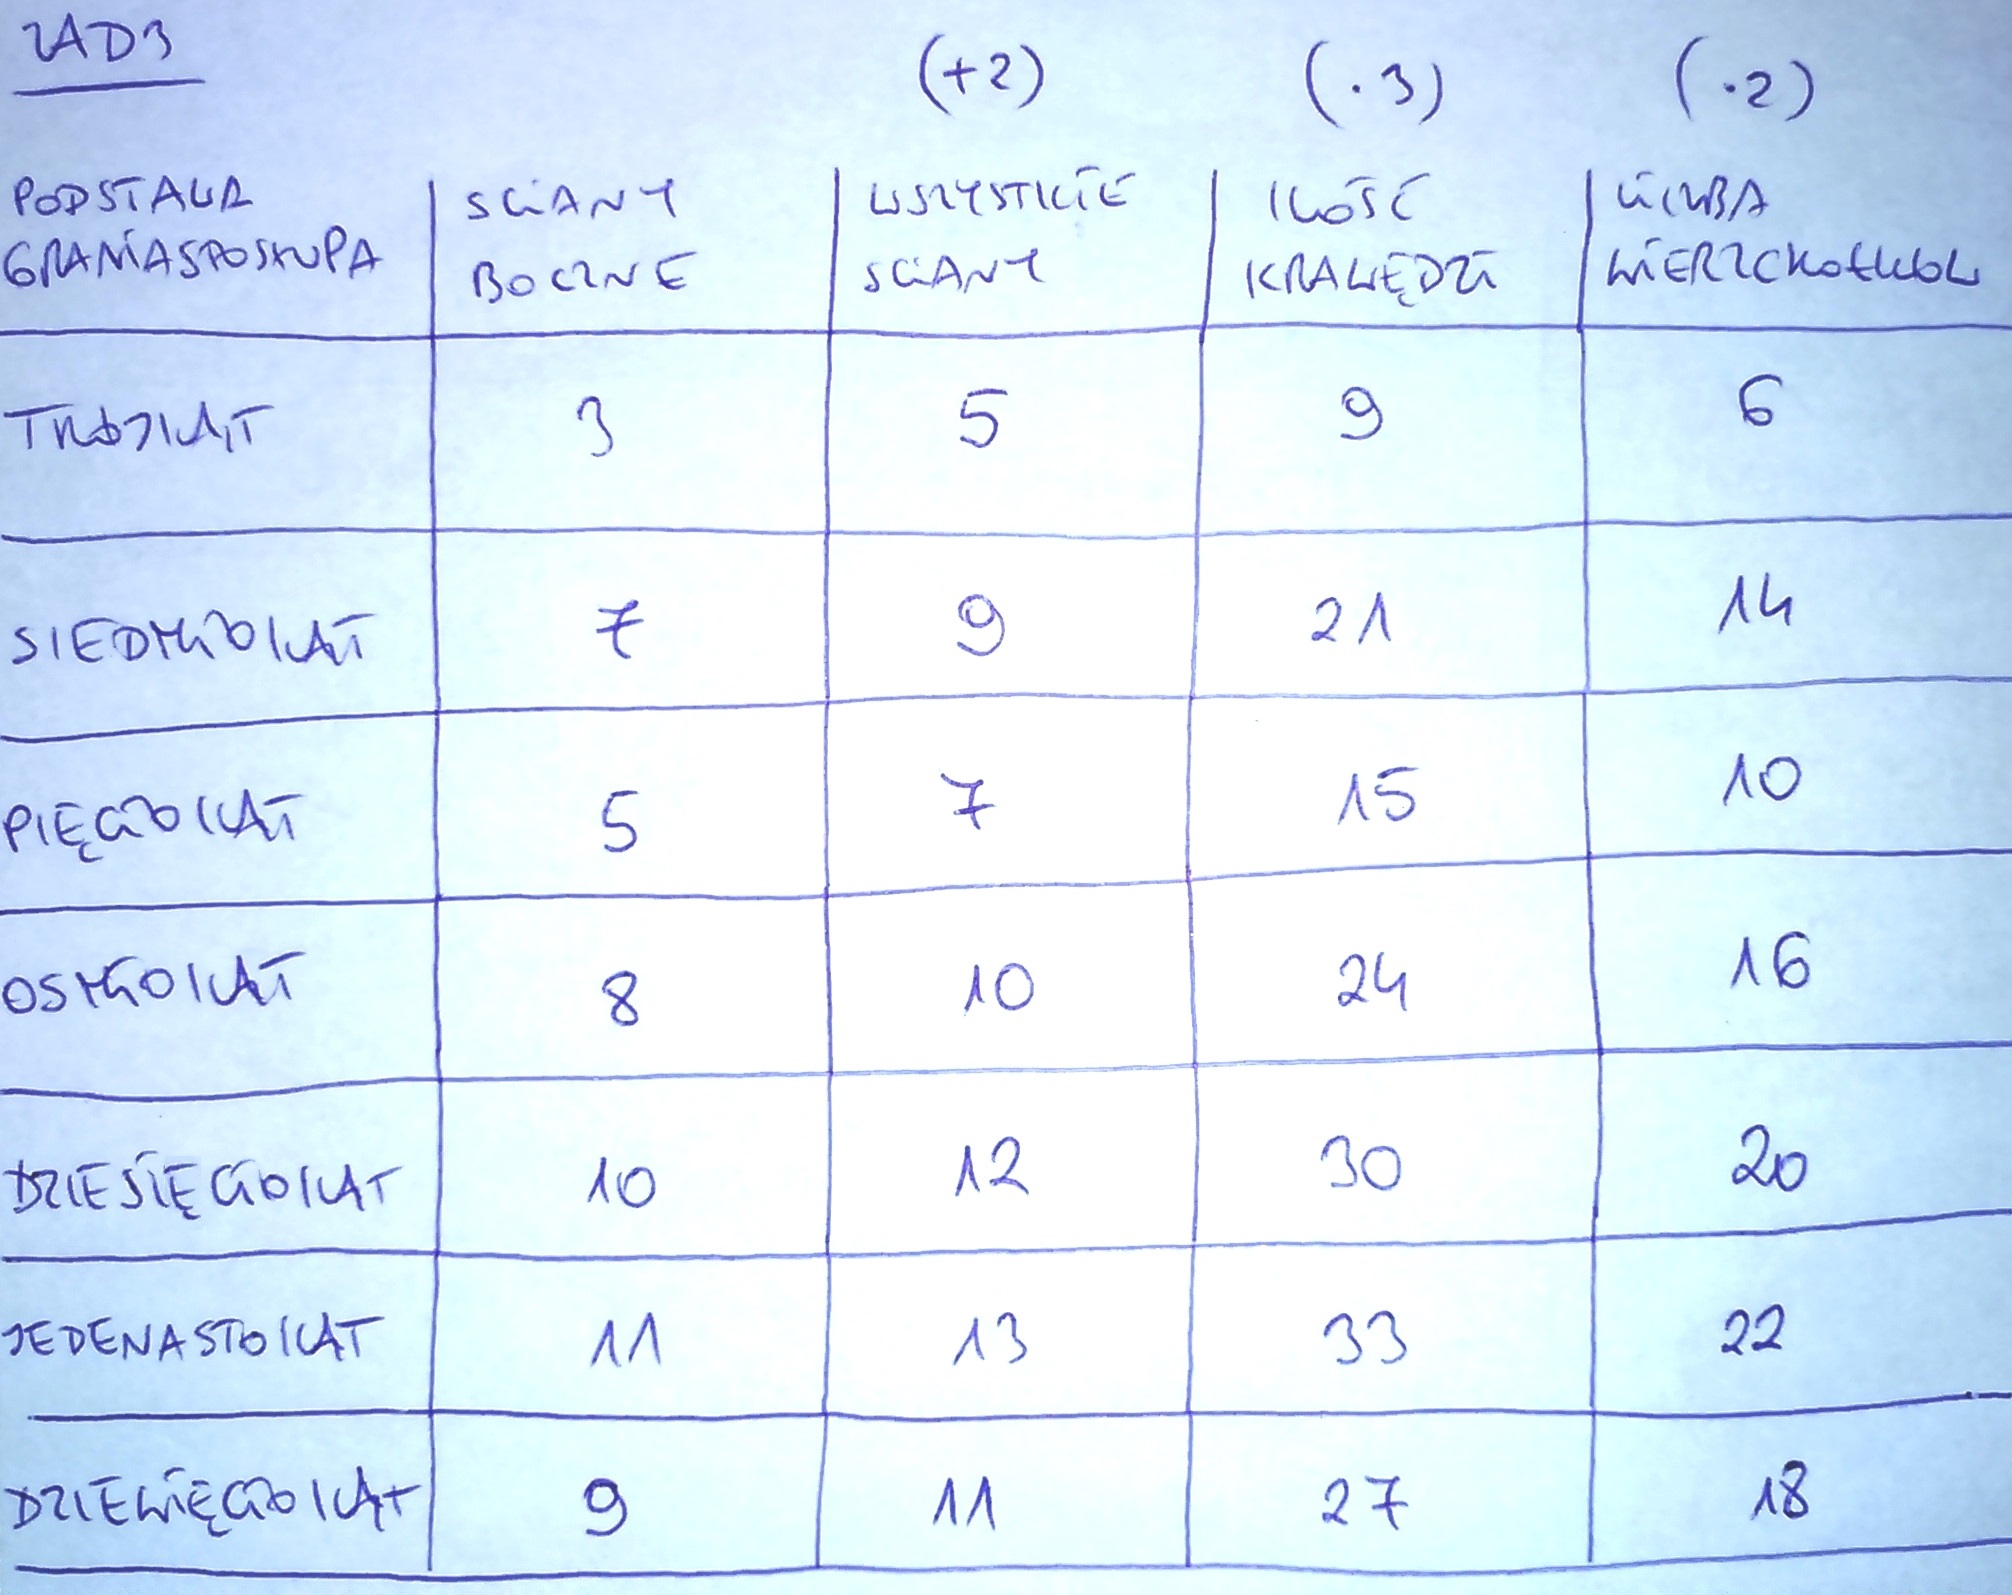 ZAD3
(+2) (·3) (·2)
PODSTAWA ŚCIANY WSZYSTKIE ILOŚĆ LICZBA
GRANIASTOSŁUPA BOCZNE ŚCIANY KRAWĘDZI WIERZCHOŁKÓW
TRÓJKĄT 3 5 9 6
SIEDMIOKĄT 7 9 21 14
PIĘCIOKĄT 5 7 15 10
OŚMIOKĄT 8 10 24 16
DZIESIĘCIOKĄT 10 12 30 20
JEDENASTOKĄT 11 13 33 22
DZIEWIĘCIOKĄT 9 11 27 18